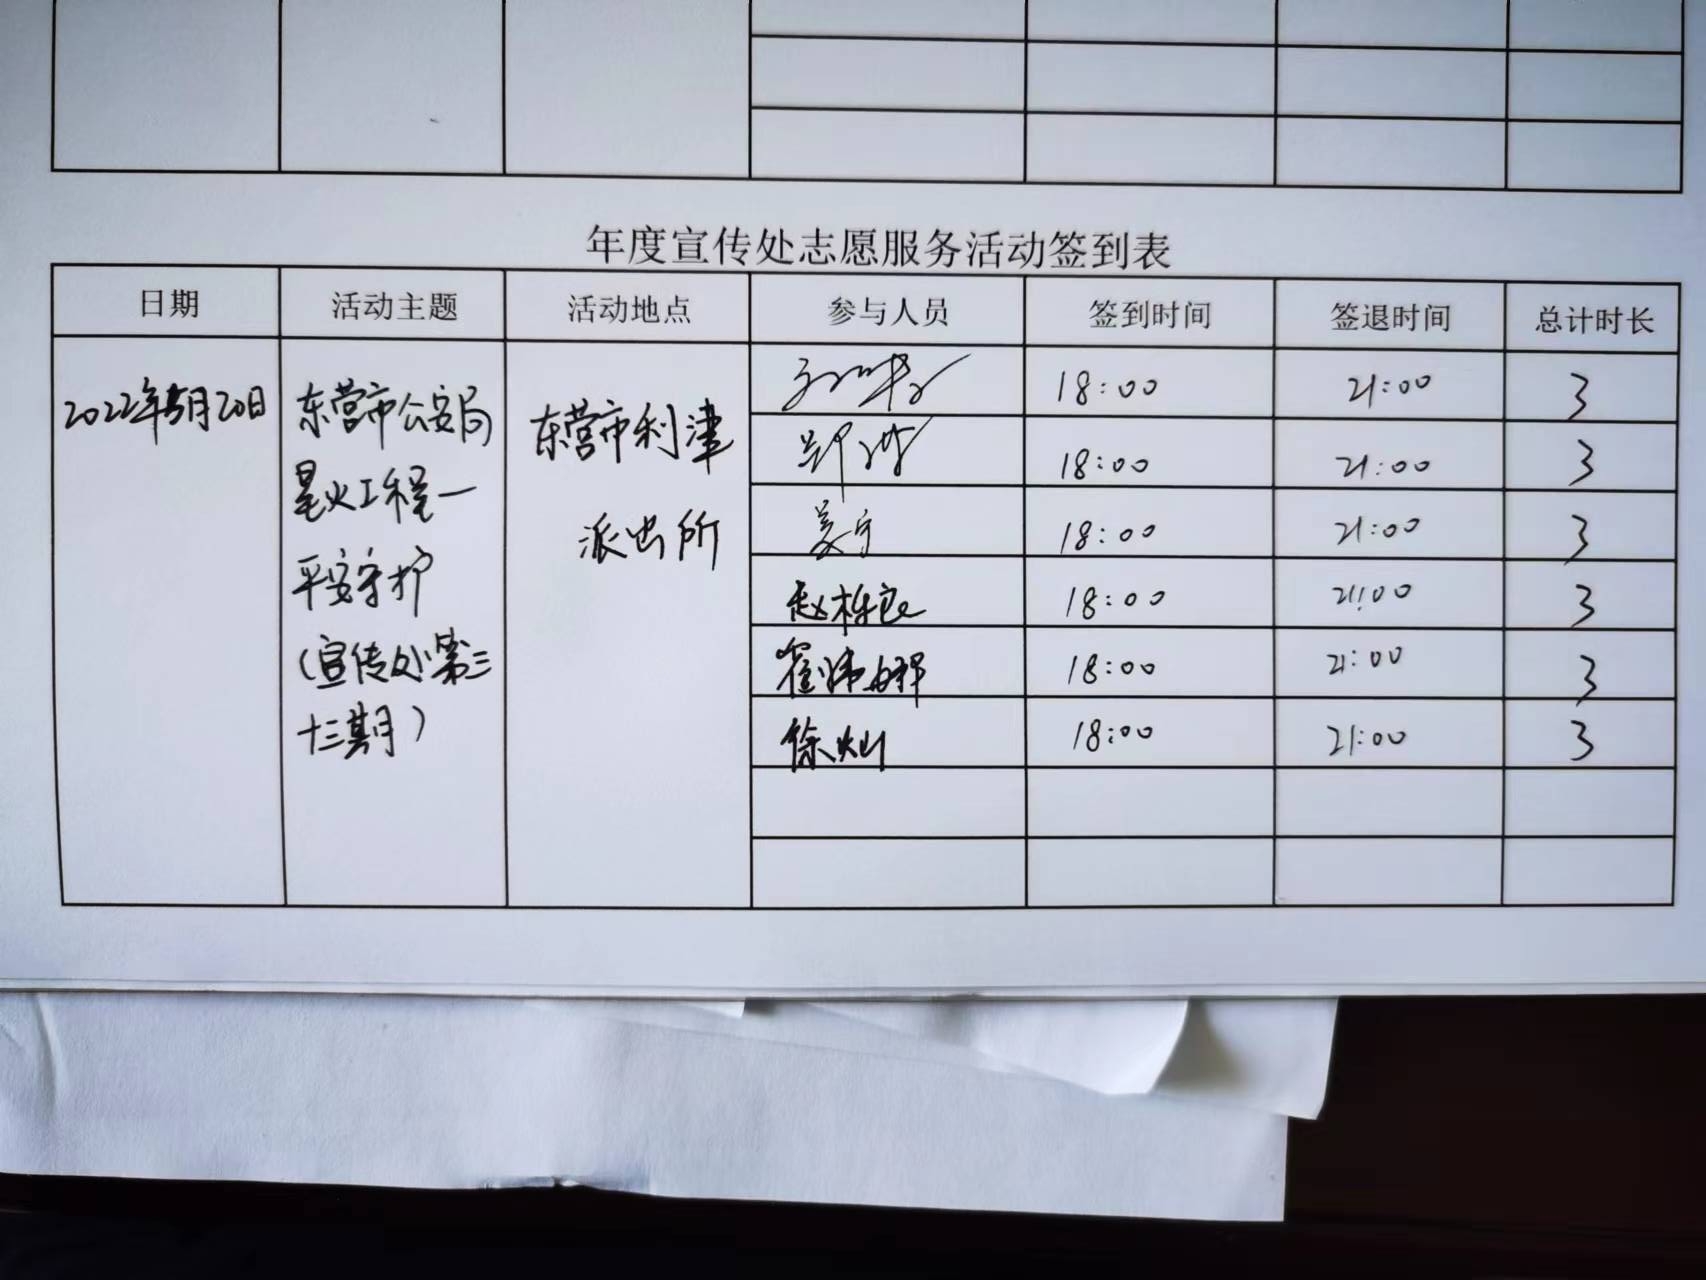 年度宣传处志愿服务活动签到表
日期 活动主题 活动地点 参与人员 签到时间 签退时间 总计时长
2022年5月20日
东营市公安局
星火工程一
平安守护
(宣传处第三
十三期)
东营市利津
派出所
18:00 21:00 3
18:00 21:00 3
姜宁 18:00 21:00 3
赵栋良 18:00 21:00 3
18:00 21:00 3
徐灿 18:00 21:00 3